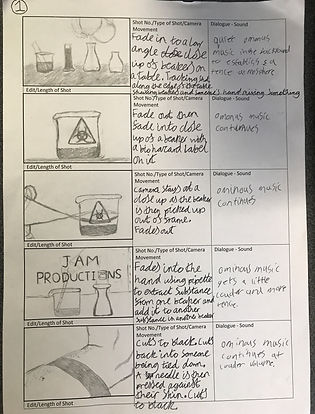 1
Shot No./Type of Shot/Camera Movement
Fade in to a low
angle close
up of beakers on
a table. Tracking shot
along the edge of the table
showing beakers and someone's hand mixing something
Dialogue - Sound
quiet ominous
music in the background
to establish a
tence atmosphere
Edit/Length of Shot
Shot No./Type of Shot/Camera Movement
Fade out then
fade into close
up of a beaker with
a biohazard label
on it
Dialogue - Sound
ominous music
continues
Edit/Length of Shot
Shot No./Type of Shot/Camera Movement
Camera stays at a
close up as the beaker
is then picked up
out of frame.
Fades out
Dialogue - Sound
ominous music
continues
Edit/Length of Shot
JAM
PRODUCTIONS
Shot No./Type of Shot/Camera Movement
Fades into the
hand using pipette
to extract substance
from one beaker and
add it to another
substance in another beaker
Dialogue - Sound
ominous music
gets a little
louder and more
tense.
Edit/Length of Shot
Shot No./Type of Shot/Camera Movement
Cuts to black. Cuts
back into someone
being tied down.
A needle is then
pressed against
their skin. Cuts
to black.
Dialogue - Sound
ominous music
continues at
louder volume.
Edit/Length of Shot